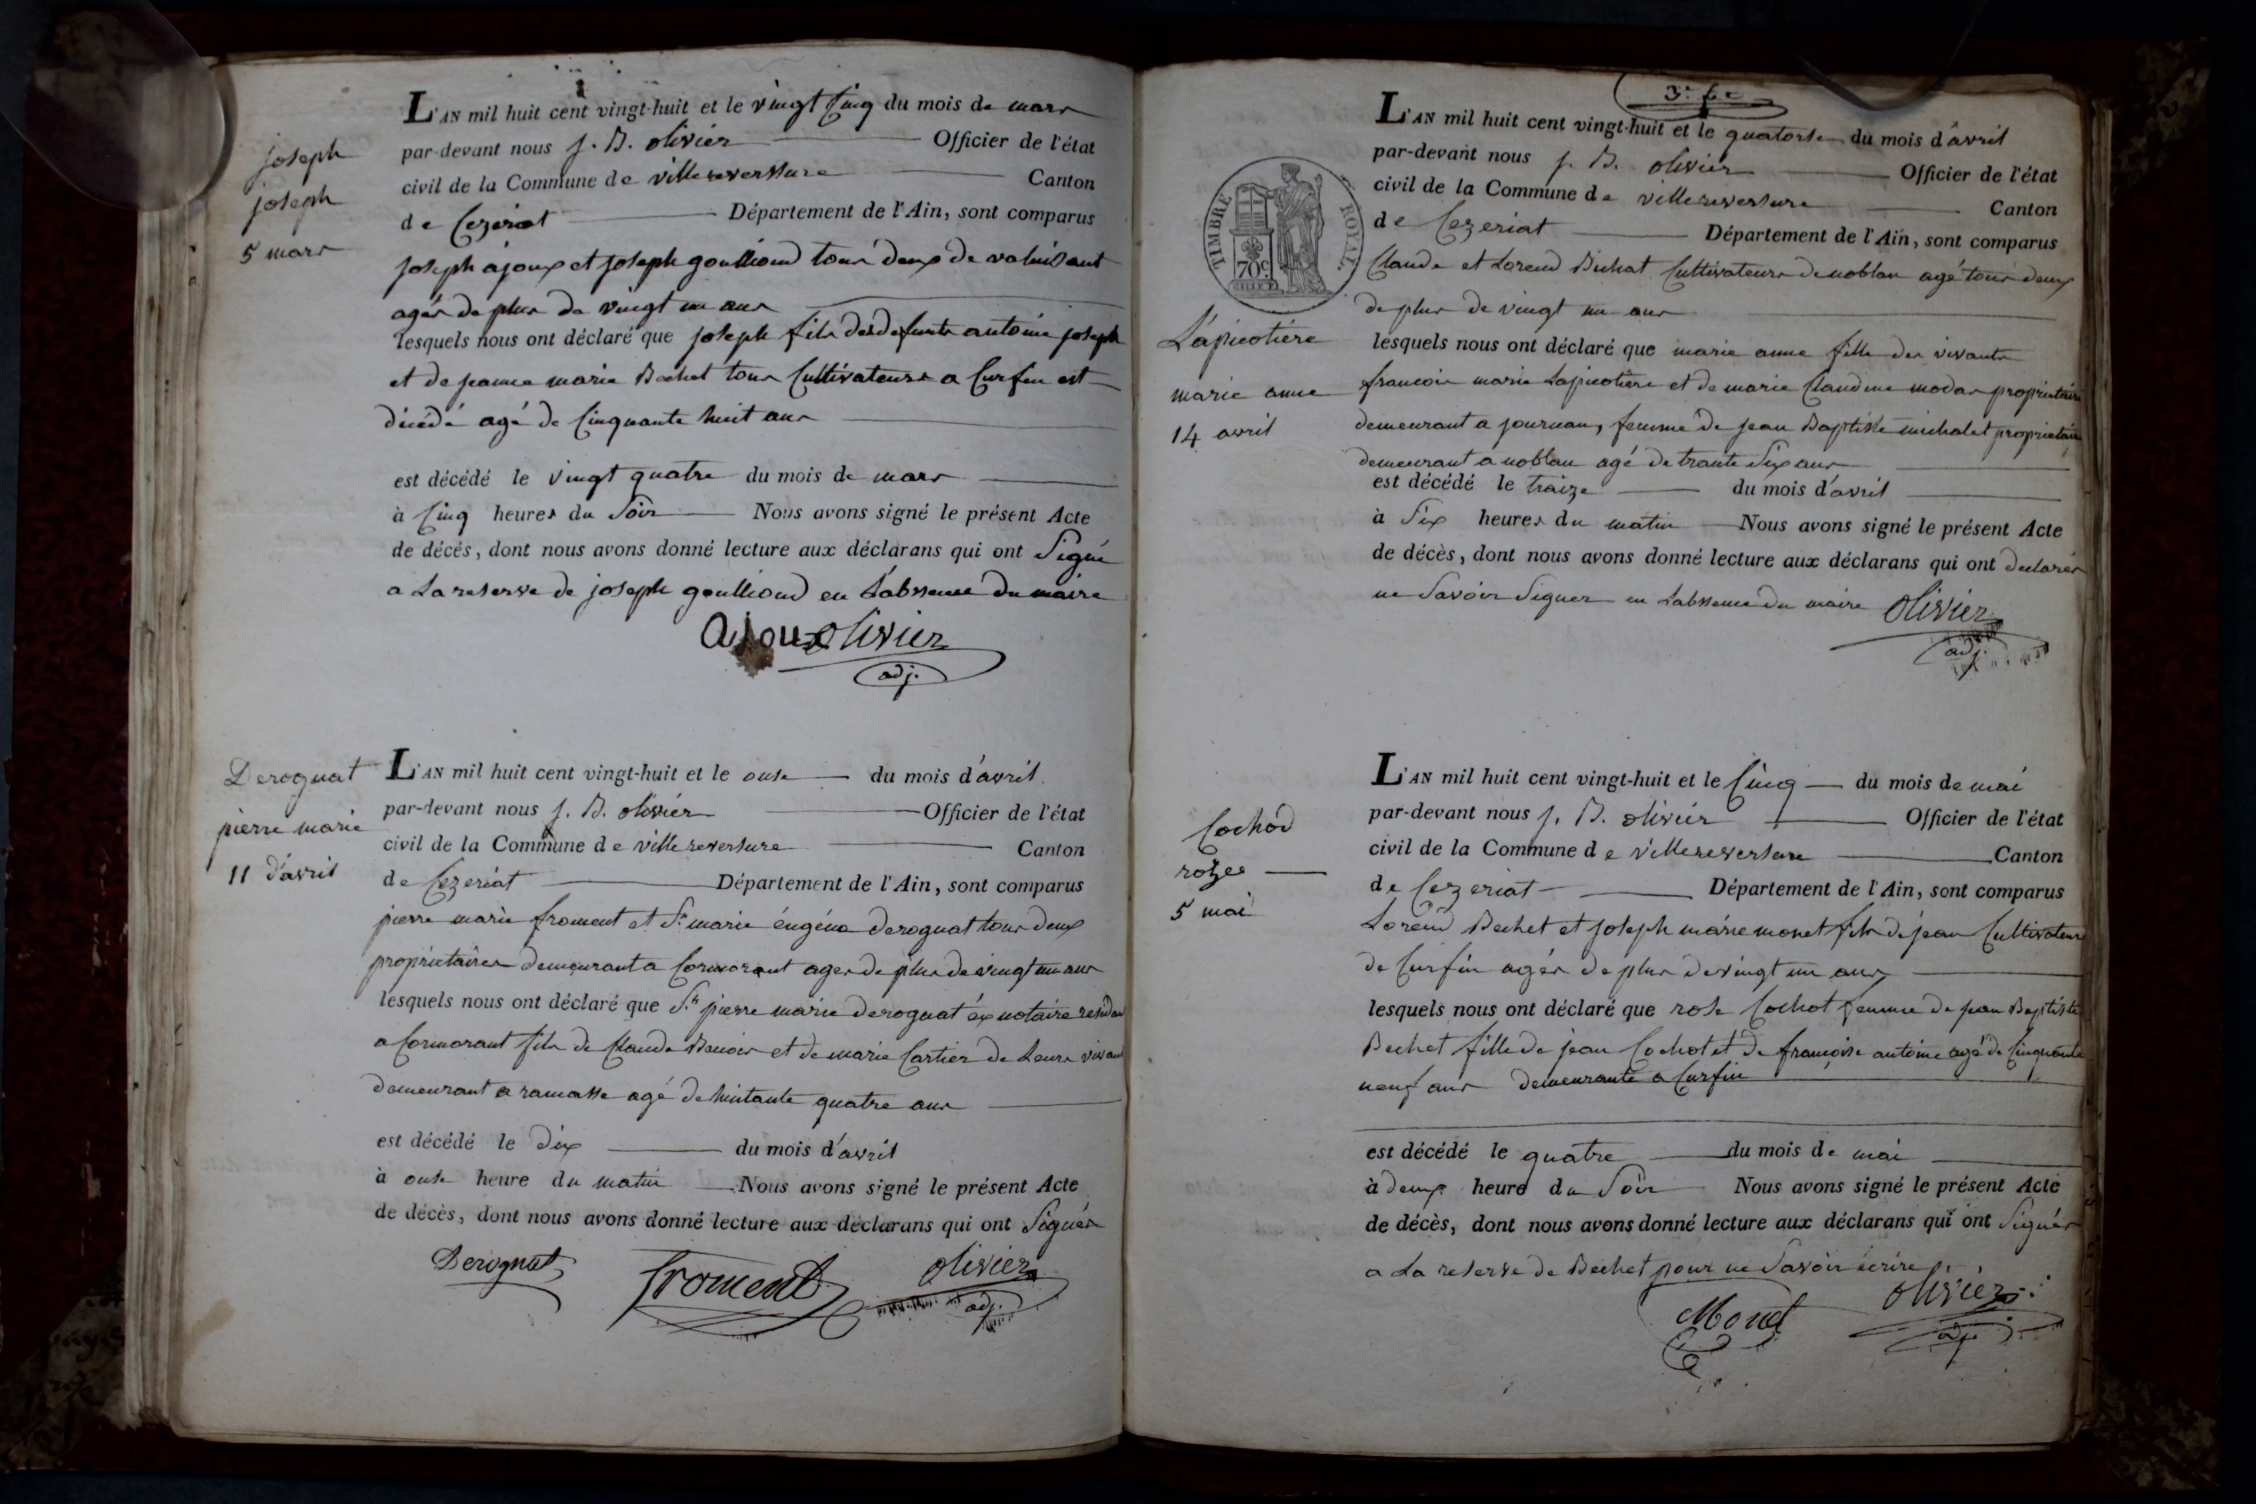 joseph
joseph
5 mars
L'AN mil huit cent vingt-huit et le vingt cinq du mois de mars
par-devant nous j. B. olivier Officier de l'état
civil de la Commune de villereversure Canton
de Cezeriat Département de l'Ain, sont comparus
joseph ajoux et joseph goullioud tous deux de valuisant
agés de plus de vingt un ans
lesquels nous ont déclaré que joseph fils des defunts antoine joseph
et de jeanne marie Bechet tous Cultivateurs a Curfin est
décédé agé de Cinquante huit ans
est décédé le vingt quatre du mois de mars
à Cinq heures du Soir Nous avons signé le présent Acte
de décès, dont nous avons donné lecture aux déclarans qui ont Signé
a La reserve de joseph goullioud en L'abssence du maire
Ajoux olivier
adj.
Derognat
pierre marie
11 d'avril
L'AN mil huit cent vingt-huit et le onse du mois d'avril
par-devant nous j. B. olivier Officier de l'état
civil de la Commune de villereversure Canton
de Cezeriat Département de l'Ain, sont comparus
pierre marie froment et Sr marie éugéne derognat tous deux
proprietaires demeurant a Cormorant ages de plus de vingt un ans
lesquels nous ont déclaré que Sr pierre marie derognat éx notaire residan
a Cormorant fils de Claude Benois et de marie Cartier de Leurs vivant
demeurant a ramasse agé de huitante quatre ans
est décédé le dix du mois d'avril
à onse heure du matin Nous avons signé le présent Acte
de décès, dont nous avons donné lecture aux déclarans qui ont Signés
Derognat froment olivier
adj.
3e fe
TIMBRE ROYAL
70c
L'apicotiére
marie anne
14 avril
L'AN mil huit cent vingt-huit et le quatorse du mois d'avril
par-devant nous j. B. olivier Officier de l'état
civil de la Commune de villereversure Canton
de Cezeriat Département de l'Ain, sont comparus
Claude et Lorend Bichat Cultivateurs de noblan agé tous deux
de plus de vingt un ans
lesquels nous ont déclaré que marie anne fille des vivants
francois marie Lapicotiere et de marie Claudine modas proprietaire
demeurant a journan, femme de jean Baptiste michalet proprietaire
demeurant a noblan agé de trante Six ans
est décédé le traize du mois d'avril
à Six heures du matin Nous avons signé le présent Acte
de décès, dont nous avons donné lecture aux déclarans qui ont declarés
ne Savoir Signer en Labssence du maire olivier
adj.
Cochod
rozee
5 mai
L'AN mil huit cent vingt-huit et le Cinq du mois de mai
par-devant nous j. B. olivier Officier de l'état
civil de la Commune de villereversure Canton
de Cezeriat Département de l'Ain, sont comparus
Lorend Bechet et joseph marie monet fils de jean Cultivateurs
de Curfin agés de plus de vingt un ans
lesquels nous ont déclaré que rose Cochot femme de jean Baptiste
Bechet fille de jean Cochot et de françoise antoine agé de Cinquante
neuf ans demeurante a Curfin
est décédé le quatre du mois de mai
à deux heure du Soir Nous avons signé le présent Acte
de décès, dont nous avons donné lecture aux déclarans qui ont Signés
a La reserve de Bechet pour ne Savoir écrire
Monet olivier
adj.